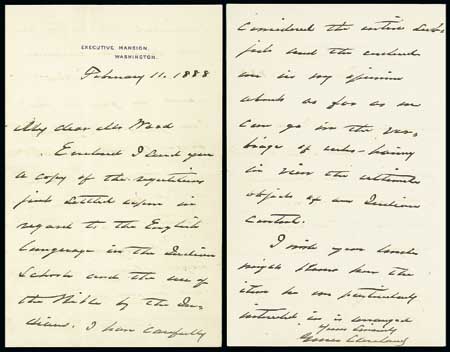 EXECUTIVE MANSION,
WASHINGTON.
February 11. 1888
My dear Mr Ward
Enclosed I send you
a copy of the regulations
just settled upon in
regard to the English
language in the Indian
Schools and the use of
the Bible by the In-
dians. I have carefully
considered the entire sub-
ject and the enclosed
are in my opinion
about as far as we
can go in the
of rules - having
in view the ultimate
objects of our Indian
Control.
I wish you would
show him the
item he was particularly
interested in as arranged
Yours Sincerely
Grover Cleveland